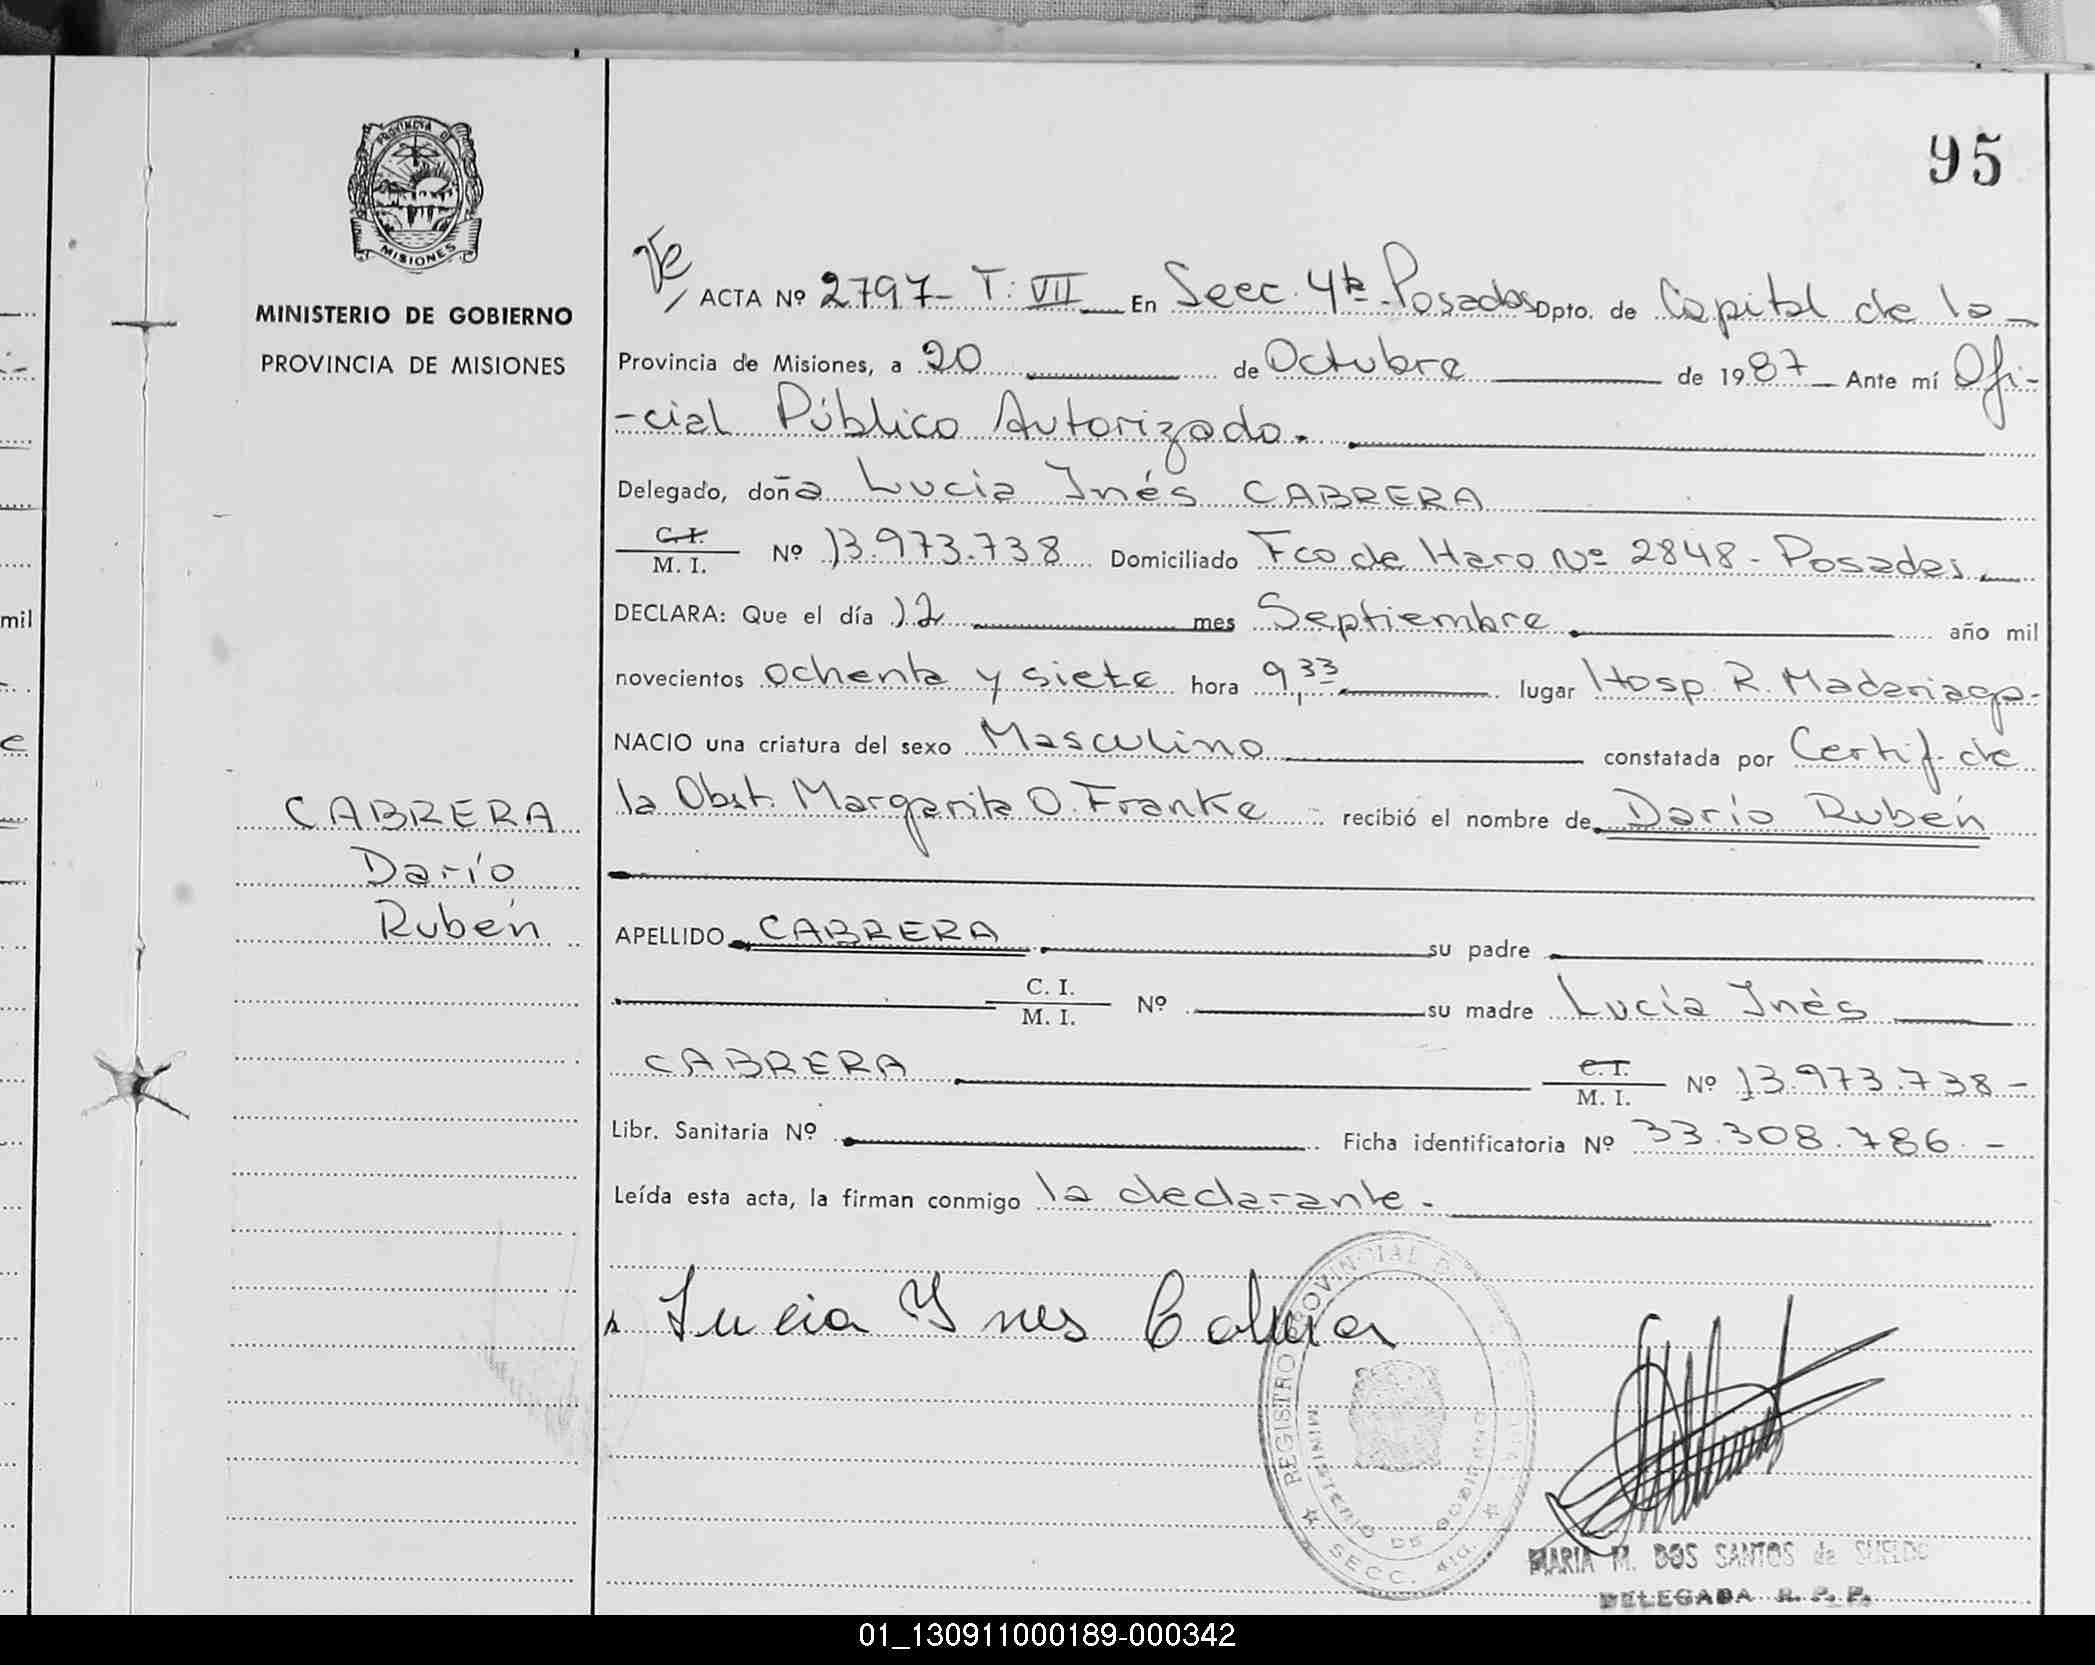 95
PROVINCIA DE
MISIONES
MINISTERIO DE GOBIERNO
PROVINCIA DE MISIONES
ACTA Nº 2797- T: VII En Secc. 4ta Posadas Dpto. de Capital de la
Provincia de Misiones, a 20 de Octubre de 1987 Ante mí Ofi-
-cial Público Autorizado.
Delegado, doña Lucia Inés CABRERA
C. I.
M. I. Nº 13.973.738 Domiciliado Fco de Haro Nº 2848 - Posadas
DECLARA: Que el día 12 mes Septiembre año mil
novecientos ochenta y siete hora 9,33 lugar Hosp. R. Madariaga-
NACIO una criatura del sexo Masculino constatada por Certif. de
la Obst. Margarita O. Franke - recibió el nombre de Darío Rubén
CABRERA
Darío
Rubén
APELLIDO CABRERA su padre
C. I.
M. I. Nº su madre Lucía Inés
CABRERA C. I.
M. I. Nº 13.973.738 -
Libr. Sanitaria Nº Ficha identificatoria Nº 33.308.786. -
Leída esta acta, la firman conmigo la declarante.
Lucia Ynes Cabrera
REGISTRO PROVINCIAL
MINISTERIO DE GOBIERNO
SECC. 4ta.
MARIA M. DOS SANTOS de SUELDO
DELEGADA R. P. P.
mil
e
01_130911000189-000342